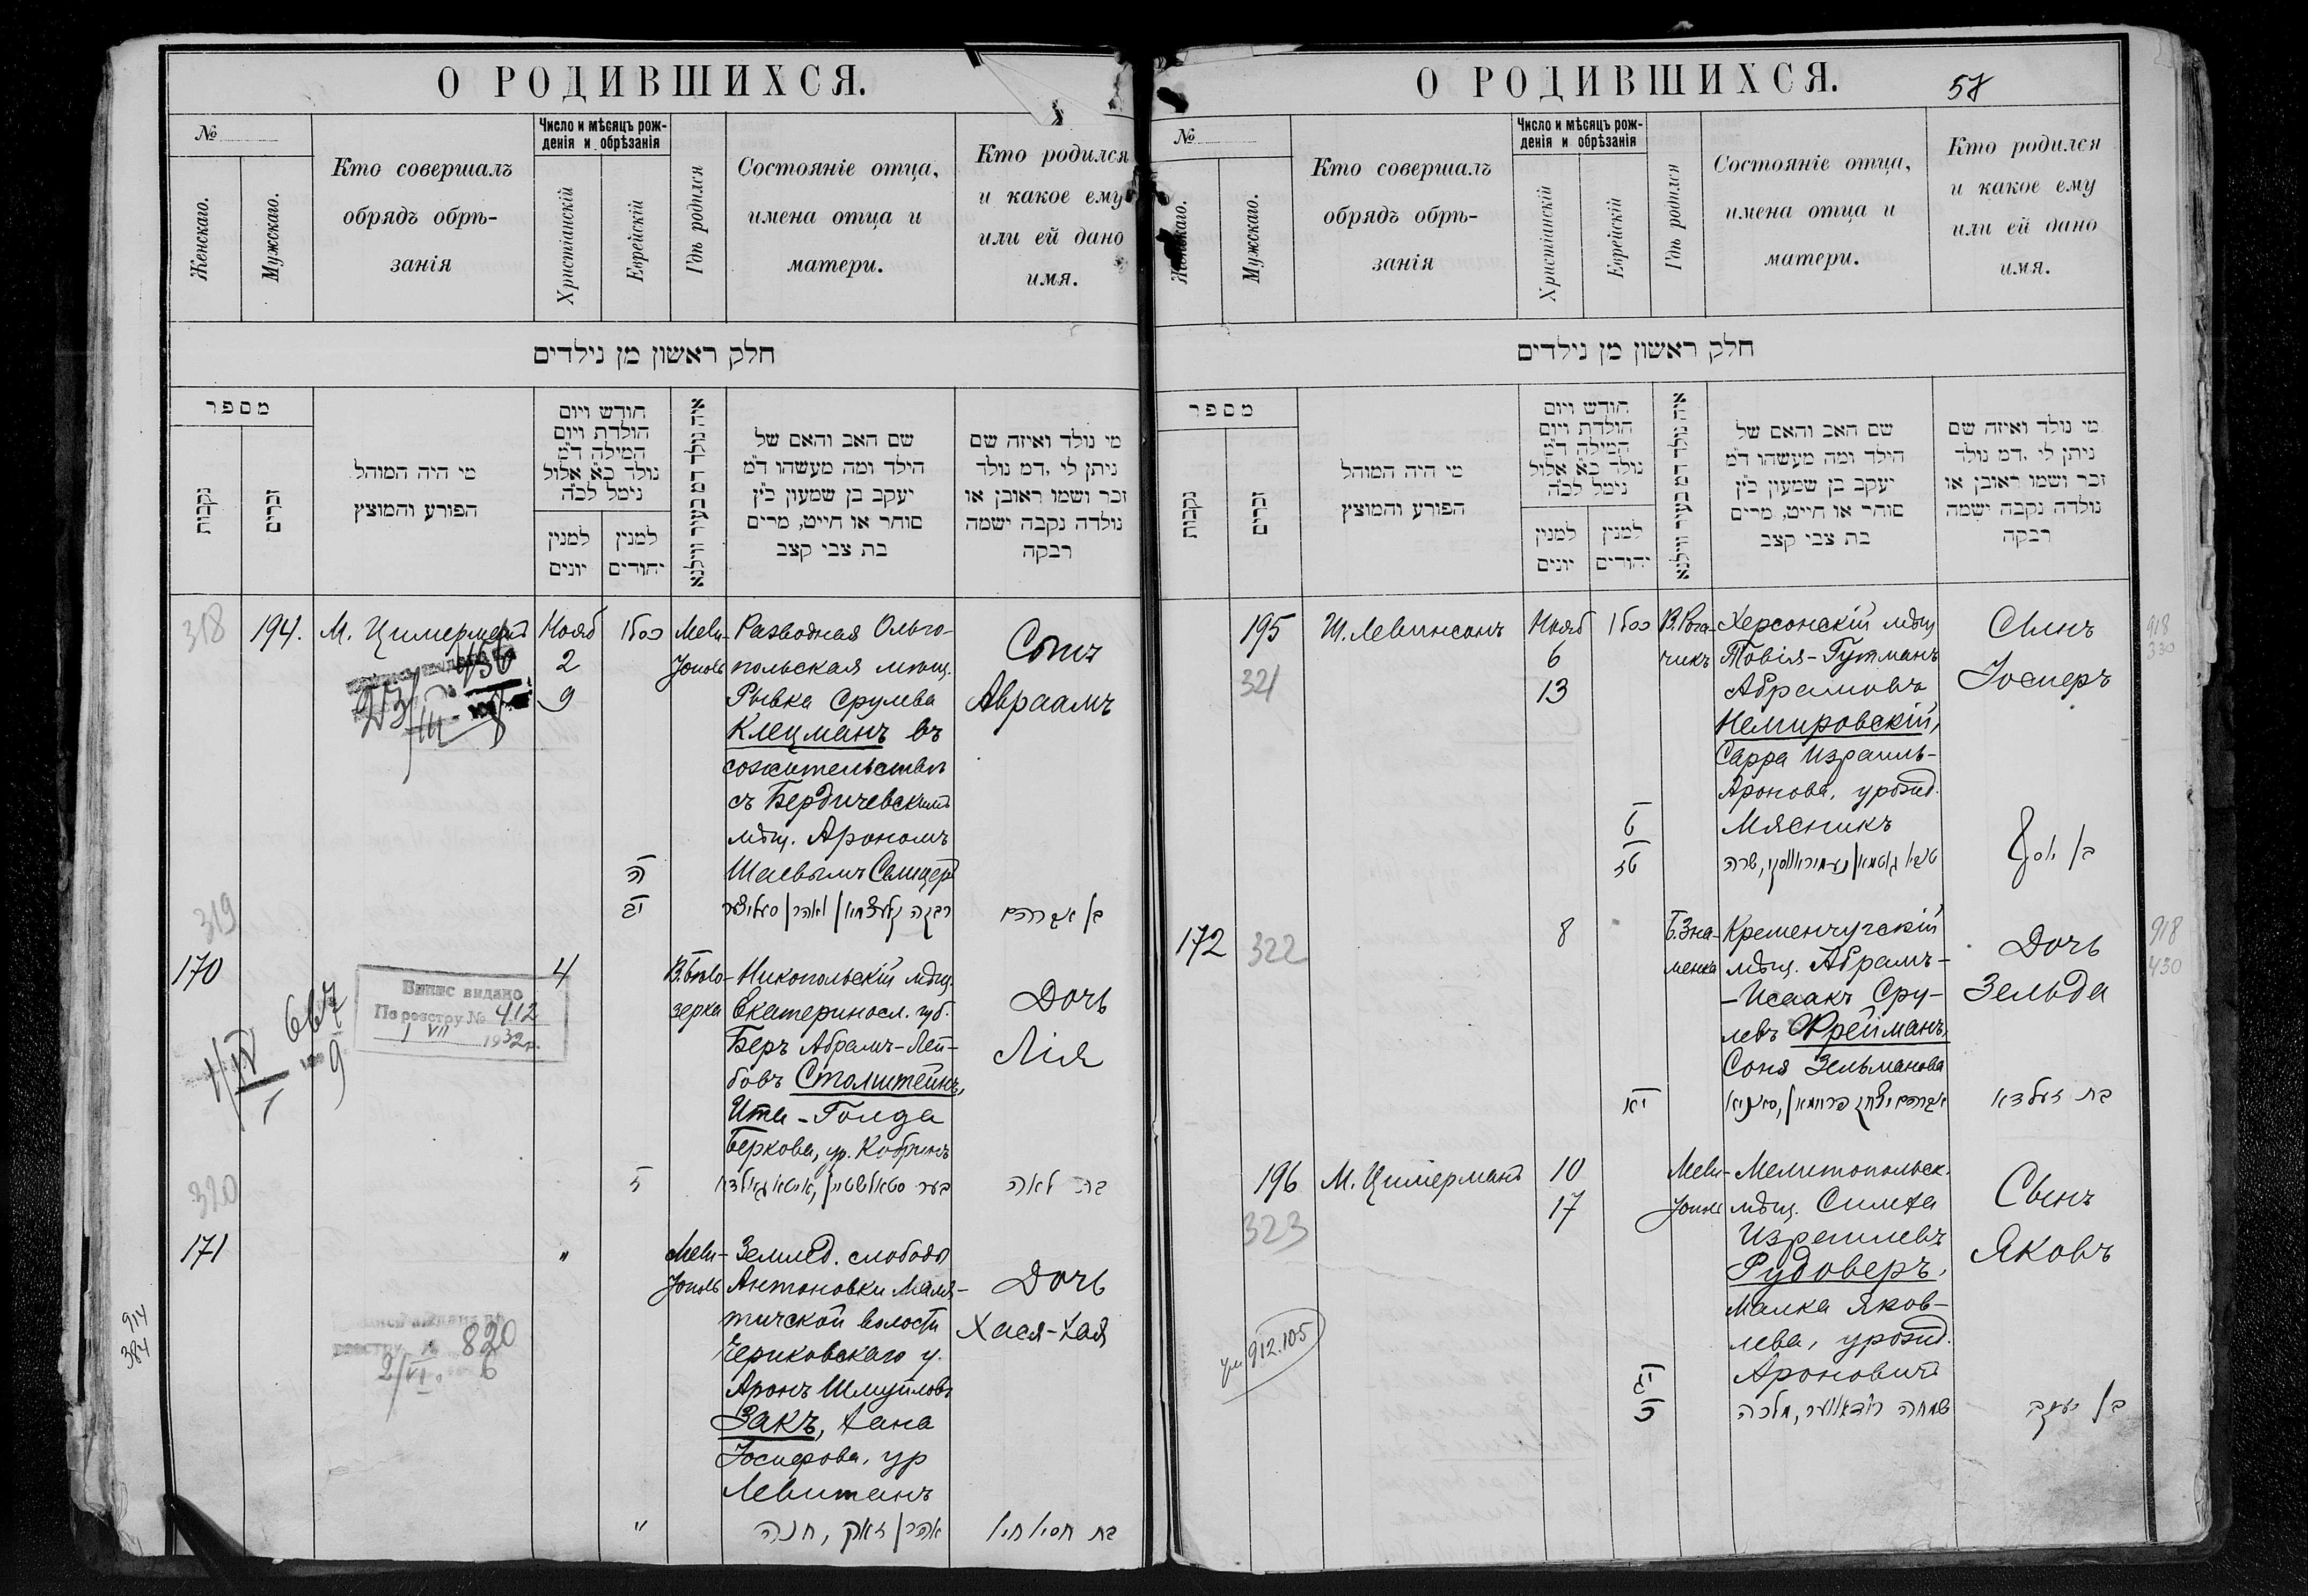 О РОДИВШИХСЯ.
№
Женскаго.
Мужскаго.
Кто совершалъ
обрядъ обрѣ-
занія
Число и мѣсяцъ рож-
денія и обрѣзанія
Христіанскій
Еврейскій
Гдѣ родился
Состояніе отца,
имена отца и
матери.
Кто родился
и какое ему
или ей дано
имя.
חלק ראשון מן נילדים
מספר
נקבות
זכרים
מי היה המוהל
הפורע והמוצץ
חודש ויום
הולדת ויום
המילה ד״מ
נולד כ״א אלול
נימל לכ״ה
למנין
יונים
למנין
יהודים
איה נולד דמ בעיר ווילנא
שם האב והאם של
הילד ומה מעשהו ד״מ
יעקב בן שמעון כ״ץ
סוחר או חייט, מרים
בת צבי קצב
מי נולד ואיזה שם
ניתן לי, דמ נולד
זכר ושמו ראובן או
נולדה נקבה ישמה
רבקה
318
194.
М. Цимерманъ
456
Нояб
2
9
כסלו
Мели-
тополь
Разводная Ольго-
польская мѣщ.
Рывка Срулева
Клецманъ въ
сожительствѣ
съ Бердичевскимъ
мѣщ. Арономъ
Шаевымъ
ה
יב
Сынъ
Авраамъ
בן אברהם
319
170
667
9
Випис видано
По реєстру № 412
1 VII 1932р.
4
В. Бѣло-
зерка
Никопольскій мѣщ.
Екатериносл. губ.
Беръ Абрамъ-Лей-
бовъ Столштейнъ,
Ита-Голда
Беркова, ур. Кобринъ
ז
Дочь
Лія
בת לאה
320
171
914
384
820
2/VI
6
"
Мели-
тополь
Землед. слободы
Антоновки Маля-
тичской волости
Чериковскаго у.
Аронъ Шмуйловъ
Закъ, Хана
Іосифова, ур
Левитанъ
"
אהרן זאק, חנה
Дочь
Хася-Хая
О РОДИВШИХСЯ.
58
№
Женскаго.
Мужскаго.
Кто совершалъ
обрядъ обрѣ-
занія
Число и мѣсяцъ рож-
денія и обрѣзанія
Христіанскій
Еврейскій
Гдѣ родился
Состояніе отца,
имена отца и
матери.
Кто родился
и какое ему
или ей дано
имя.
חלק ראשון מן נילדים
מספר
נקבות
זכרים
מי היה המוהל
הפורע והמוצץ
חודש ויום
הולדת ויום
המילה ד״מ
נולד כ״א אלול
נימל לכ״ה
למנין
יונים
למנין
יהודים
איה נולד דמ בעיר ווילנא
שם האב והאם של
הילד ומה מעשהו ד״מ
יעקב בן שמעון כ״ץ
סוחר או חייט, מרים
בת צבי קצב
מי נולד ואיזה שם
ניתן לי, דמ נולד
זכר ושמו ראובן או
נולדה נקבה ישמה
רבקה
195
321
Ш. Левинсонъ
Нояб
6
13
כסלו
В. Рога-
чикъ
Херсонскій мѣщ
Товія-Гутманъ
Абрамовъ
Немировскій,
Сарра Израиль-
Аронова, урожд.
Мясникъ
ט
טז
Сынъ
Іосифъ
בן יוסף
918
330
172
322
8
Б. Зна-
менка
Кременчугскій
мѣщ. Абрамъ-
-Исаакъ Сру-
левъ Фрейманъ,
Соня Зельманова
יא
Дочь
Зельда
בת זעלדא
918
430
196
323
912.105
М. Цимерманъ
10
17
Мели-
тополь
Мелитопольск.
мѣщ. Симха
Израилевъ
Рудоверъ,
Малка Яков-
лева, урожд.
Ароновичъ
יג
שמחה רודאווער, מלכה
Сынъ
Яковъ
בן יעקב